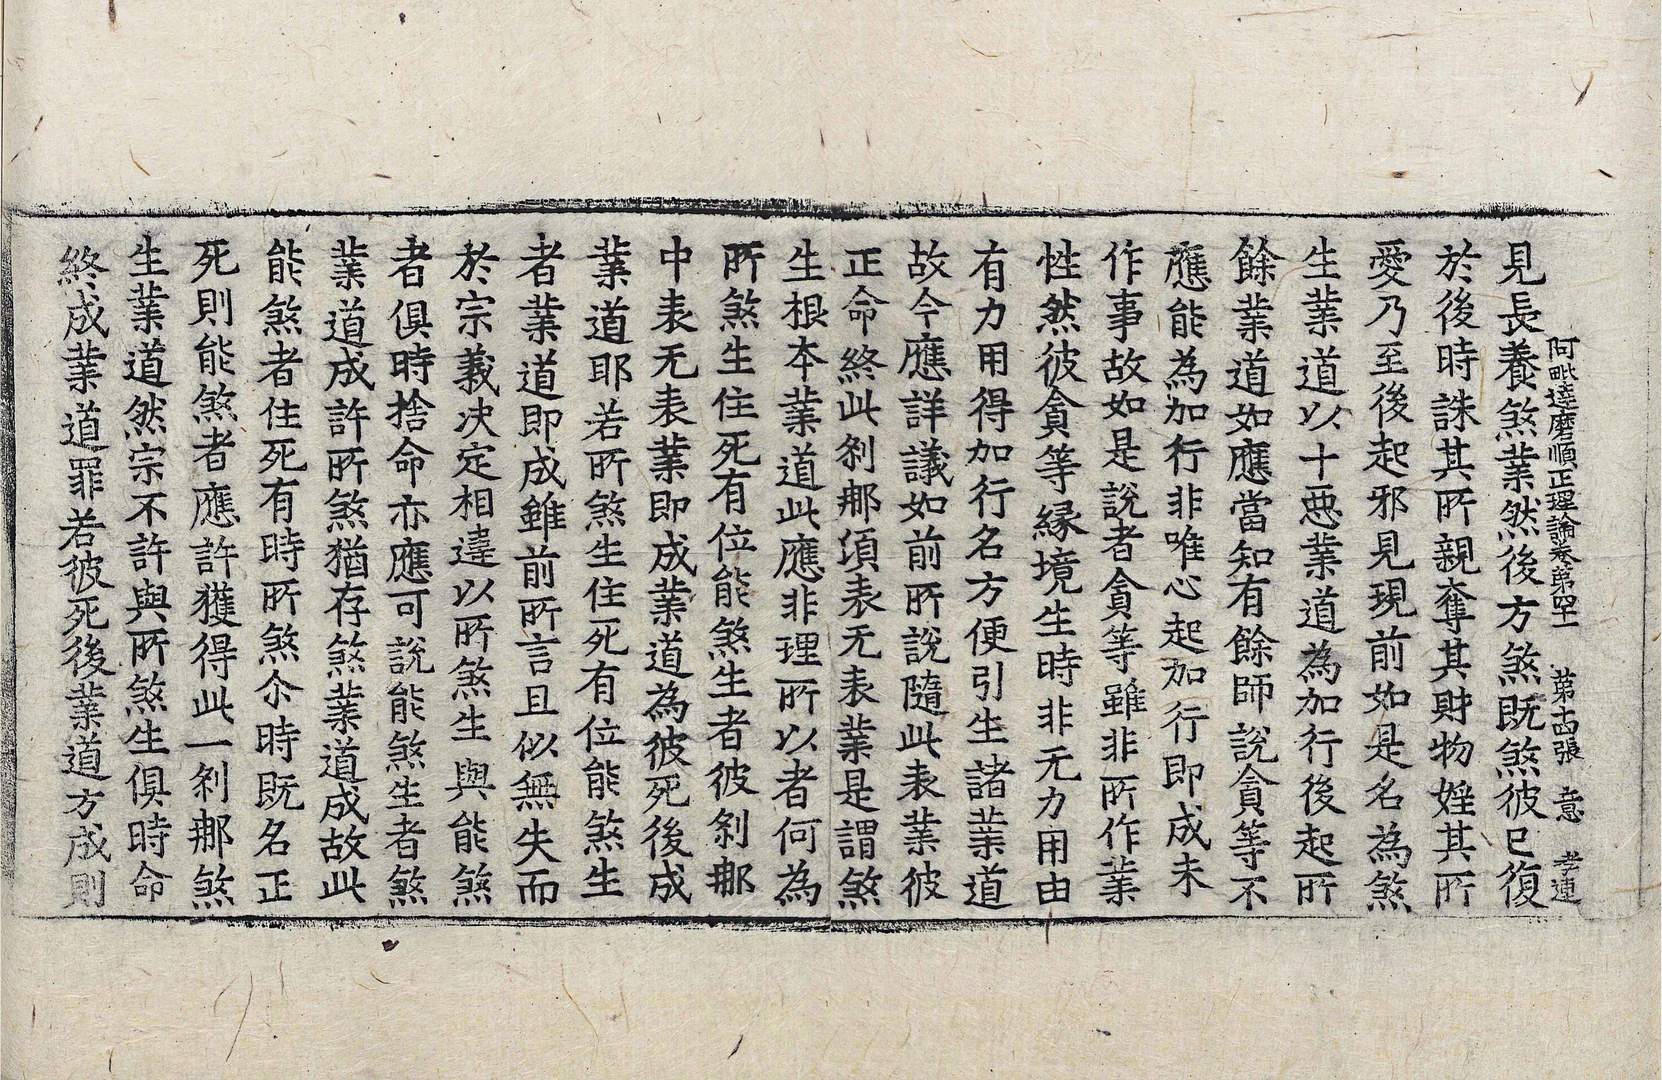 阿毗達磨順正理論卷第四十一　第十四張　意　孝連
見長養煞業然後方煞既煞彼已復
於後時誅其所親奪其財物婬其所
愛乃至後起邪見現前如是名為煞
生業道以十惡業道為加行後起所
餘業道如應當知有餘師說貪等不
應能為加行非唯心起加行即成未
作事故如是說者貪等雖非所作業
性然彼貪等緣境生時非无力用由
有力用得加行名方便引生諸業道
故今應詳議如前所說隨此表業彼
正命終此刹那須表无表業是謂煞
生根本業道此應非理所以者何為
所煞生住死有位能煞生者彼刹那
中表无表業即成業道為彼死後成
業道耶若所煞生住死有位能煞生
者業道即成雖前所言且似無失而
於宗義決定相違以所煞生與能煞
者俱時捨命亦應可說能煞生者煞
業道成許所煞猶存煞業道成故此
能煞者住死有時所煞尒時既名正
死則能煞者應許獲得此一刹那煞
生業道然宗不許與所煞生俱時命
終成業道罪若彼死後業道方成則